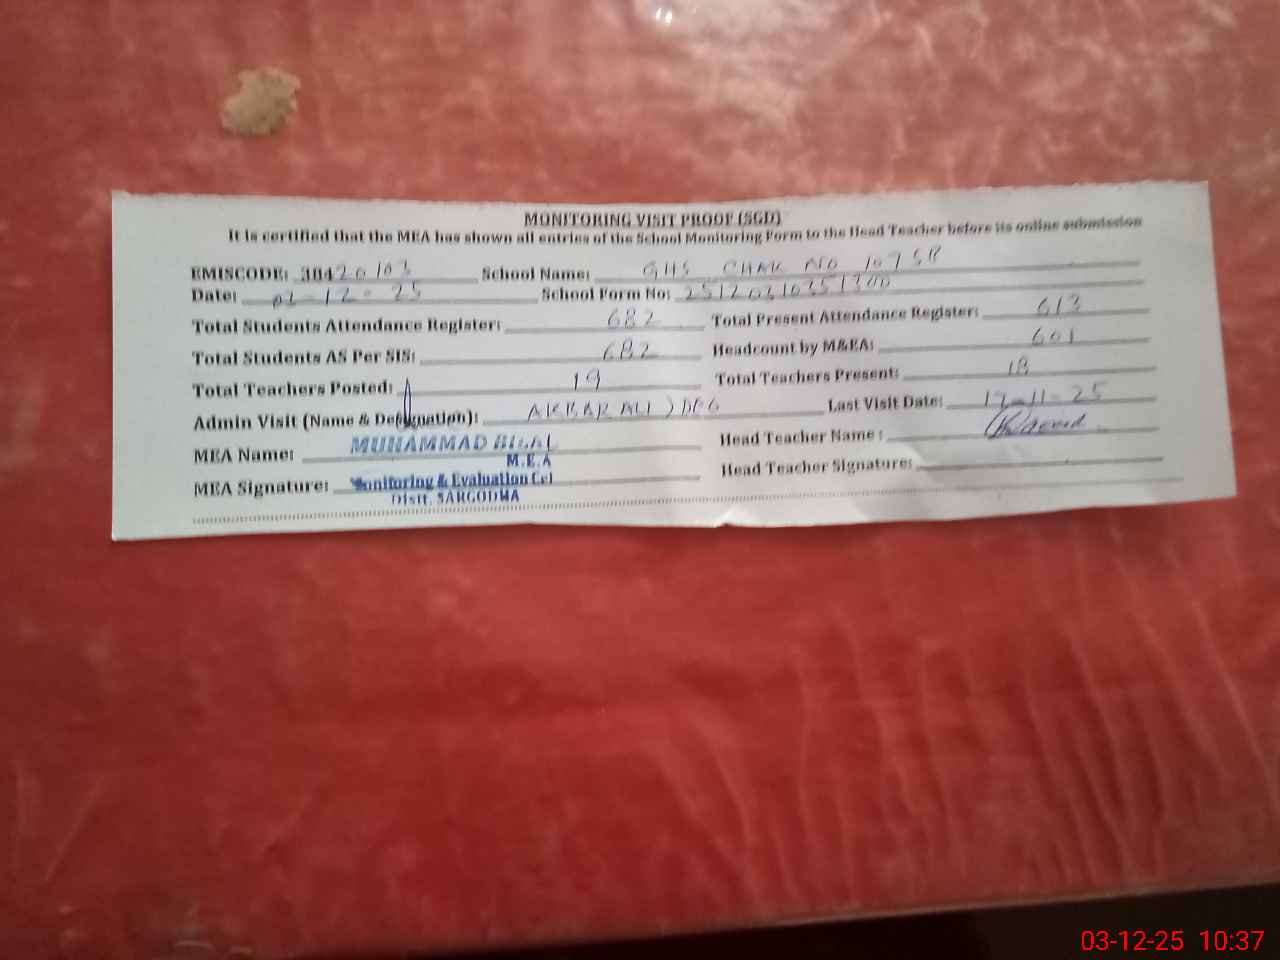 MONITORING VISIT PROOF (SGD)
It is certified that the MEA has shown all entries of the School Monitoring Form to the Head Teacher before its online submission
EMISCODE: 38420103 School Name: GHS CHAK NO 107 SB
Date: 02-12-25 School Form No:
Total Students Attendance Register: 682 Total Present Attendance Register: 613
Total Students AS Per SIS: 682 Headcount by M&EA: 601
Total Teachers Posted: 19 Total Teachers Present: 18
Admin Visit (Name & Designation): AKBAR ALI Last Visit Date: 17-11-25
MEA Name: MUHAMMAD BILAL Head Teacher Name:
M.E.A
MEA Signature: Monitoring & Evaluation Cel Head Teacher Signature:
Distt. SARGODHA
03-12-25 10:37